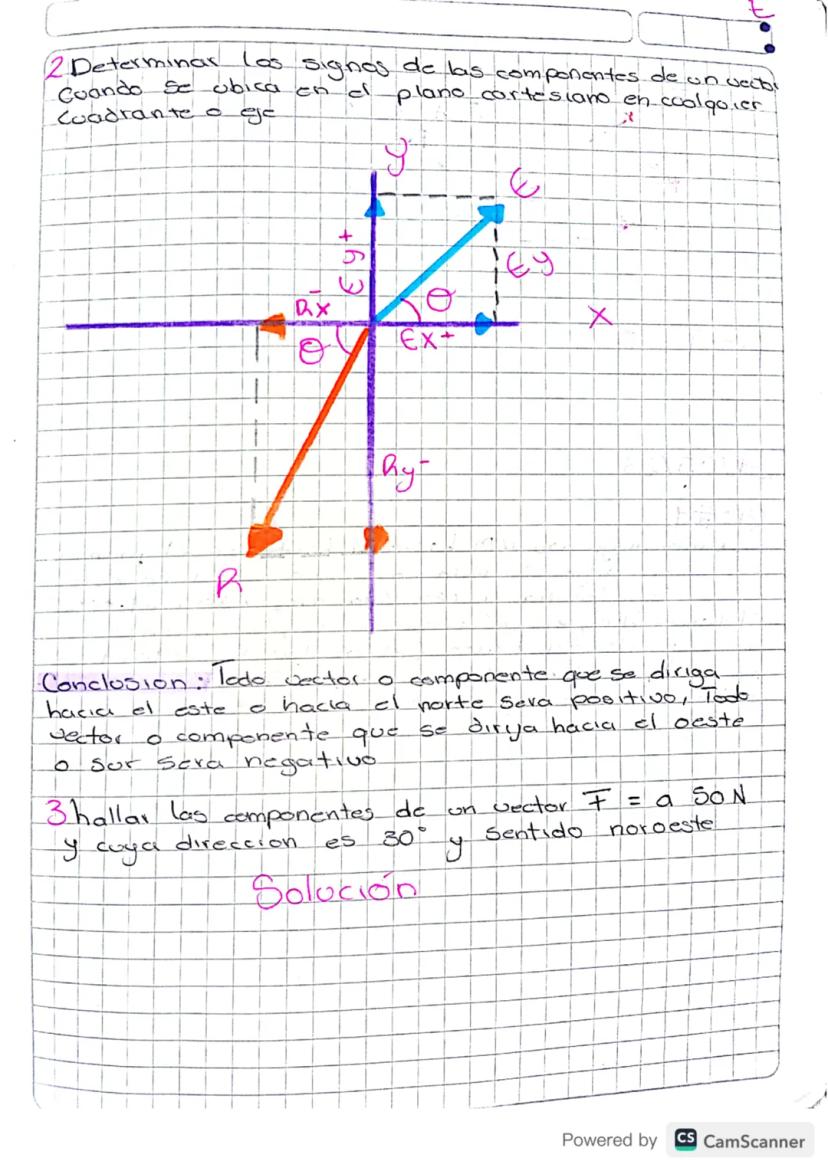 t
2 Determinar los signos de las componentes de un vector
Cuando se ubica en el plano cortesiano en cualquier
Cuadrante o eje
y
E
Ey+
Ey
Rx-
θ
X
θ
Ex+
Ry-
R
Conclusion: Todo vector o componente que se diriga
hacia el este o hacia el norte sera positivo, Todo
vector o componente que se dirija hacia el oeste
o sur sera negativo
3 hallar las componentes de un vector F = a 50 N
y cuya direccion es 30° y sentido noroeste
Solución
Powered by CS CamScanner